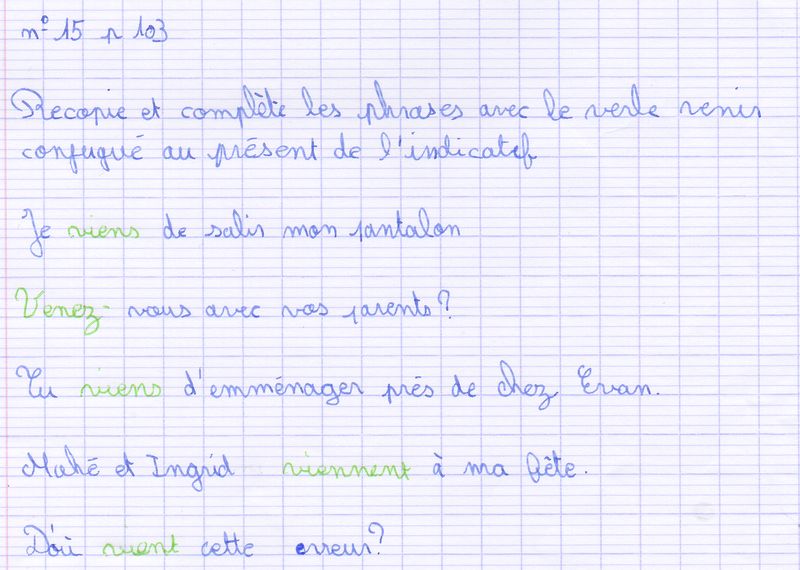 n° 15 p 103
Recopie et complète les phrases avec le verbe venir
conjugué au présent de l'indicatif
Je viens de salir mon pantalon
Venez-vous avec vos parents?
Tu viens d'emménager près de chez Evan.
Mahé et Ingrid viennent à ma fête.
D'où vient cette erreur?